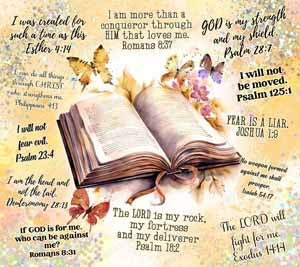 I was created for
such a time as this
Esther 4:14
I am more than a
conqueror through
HIM that loves me.
Romans 8:37
GOD is my strength
and my shield.
Psalm 28:7
I can do all things
through CHRIST
who strengthens me.
Philippians 4:13
I will not
be moved.
Psalm 125:1
I will not
fear evil.
Psalm 23:4
FEAR IS A LIAR.
JOSHUA 1:9
I am the head and
not the tail.
Deuteronomy 28:13
No weapon formed
against me shall
prosper.
Isaiah 54:17
If GOD is for me.
who can be against
me?
Romans 8:31
The LORD is my rock,
my fortress
and my deliverer
Psalm 18:2
The LORD will
fight for me.
Exodus 14:14